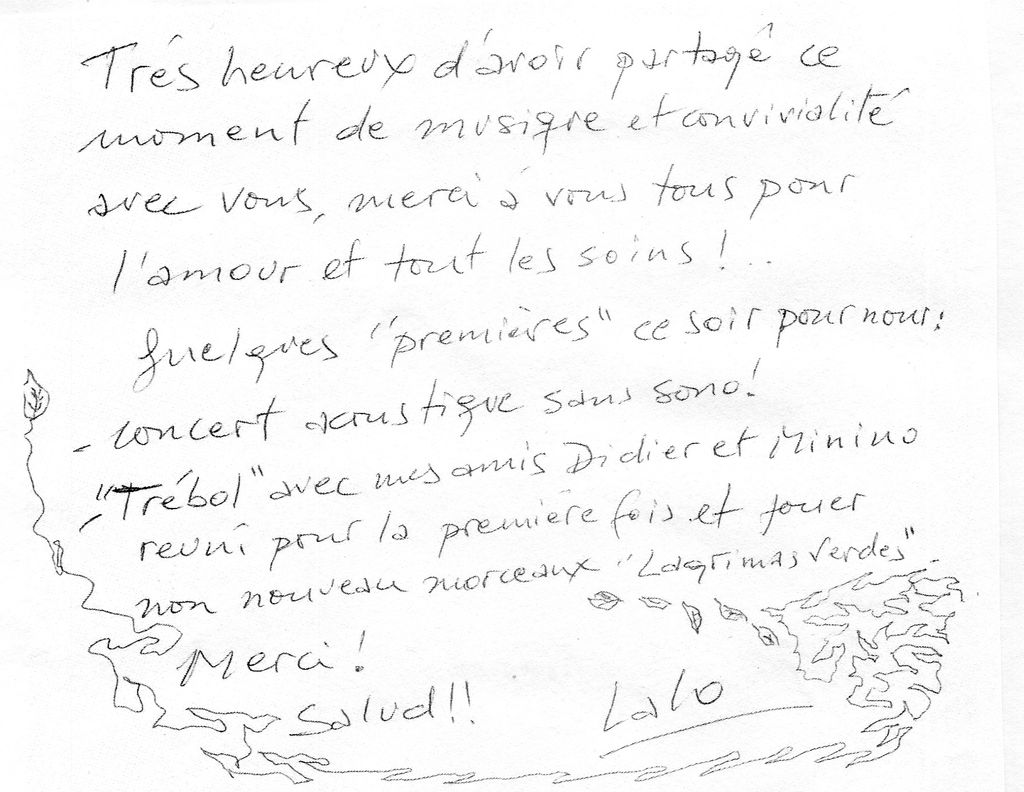 Trés heureux d'avoir partagé ce
moment de musique et convivialité
avec vous, merci à vous tous pour
l'amour et tout les soins !..
Quelques "premières" ce soir pour nous:
- concert acoustique sans sono!
- "Trébol" avec mes amis Didier et Minino
reuni pour la première fois et jouer
non nouveau morceaux "Lagrimas Verdes".
Merci!
Salud!!
Lalo